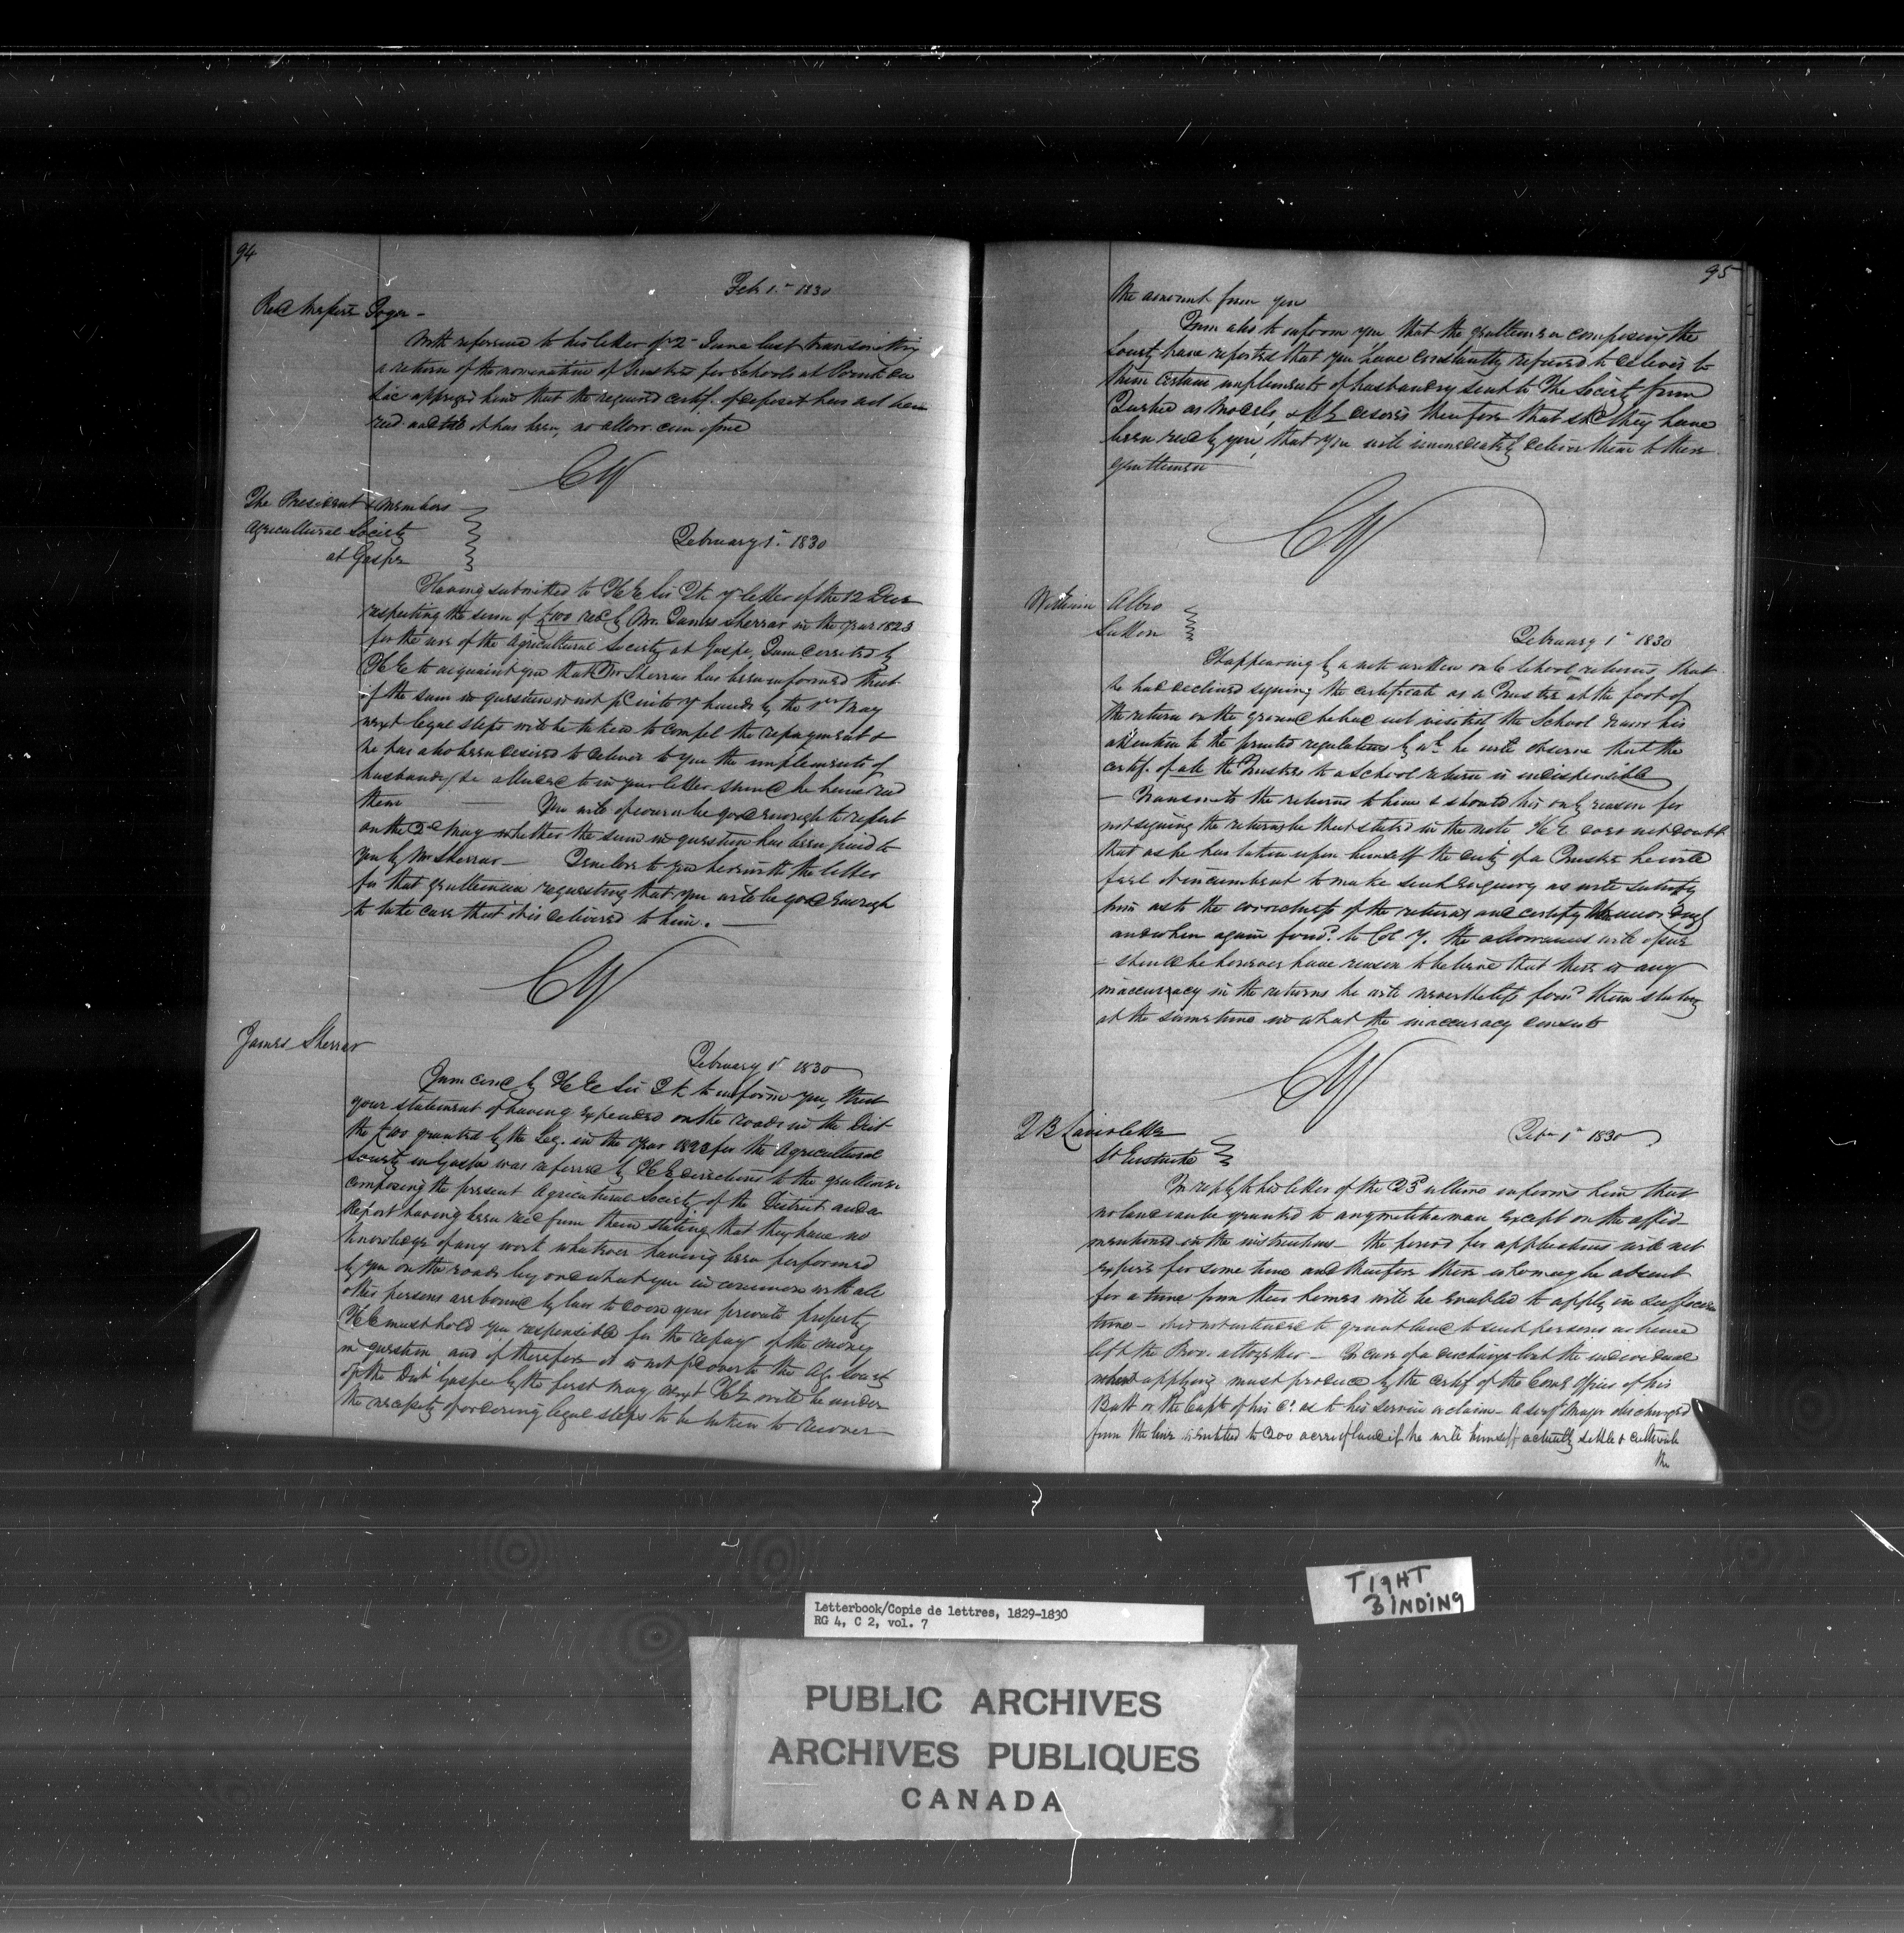 94
Feb 1st 1830
Revd Messire Goyer -
With reference to his letter of 2 June last transmitting
a return of the nomination of Trustees for Schools at Pointe du
Lac apprizes him that the required certif. of deposit has not been
recd and till it has been, no allow. can
CW
The President & Members
Agricultural Society
at Gaspe
February 1st 1830
Having submitted to H E Sir J K yr letter of the 12 Decr
respecting the sum of £100 recd by Mr. James Sherrar in the year 1823
for the use of the Agricultural Society at Gaspe, I am directed by
H E to acquaint you that Mr Sherrar has been informed that
if the sum in question is not pd into yr hands by the 1st May
next legal steps will be taken to compel the repayment &
he has also been desired to deliver to you the implements of
husbandry &c alluded to in your letter should he have recd
them You will of course be good enough to report
on the 2d May whether the sum in question has been paid to
you by Mr Sherrar - I enclose to you herewith the letter
for that gentleman requesting that you will be good enough
to take care that it is delivered to him. -
CW
James Sherrar
February 1st 1830
I am comd by H E Sir J K to inform you, that
your statement of having expended on the roads in the Dist
the £100 granted by the Leg. in the year 1823 for the Agricultural
Society in Gaspe was referred by H E directions to the gentlemen
composing the present Agricultural Society of the District and a
Report having been recd from them stating that they have no
knowledge of any work whatever having been performed
by you on the roads beyond what you in common with all
other persons are bound by law to do on your private property
H E must hold you responsible for the repay of the money
in question and if therefore it is not pd over to the Ag. Society
of the Dist Gaspe by the first May next H E will be under
the necessity of ordering legal steps to be taken to recover
95
the amount from you
I am also to inform you that the gentlemen composing the
Society have reported that you have constantly refused to deliver to
them certain implements of husbandry sent to the Society from
Quebec as models, & H E desires therefore that shd they have
been recd by you, that you will immediately deliver them to these
gentlemen
CW
William Albro
Sutton
February 1st 1830
It appearing by a note written on School returns, that
he had declined signing the certificate as a Trustee at the foot of
the return on the ground he had not visited the School draws his
attention to the printed regulations by wh he will observe that the
certif. of all the Trustees to a School return is indispensible
- Transmits the returns to him & should his only reason for
not signing the returns be that stated in the note H E does not doubt
that as he has taken upon himself the duty of a Trustee he will
feel it incumbent to make such enquiry as will satisfy
him as to the correctness of the returns and certify them accordingly
and when again forwd. to Col Y. the allowances will
- should he however have reason to believe that there is any
inaccuracy in the returns he will nevertheless forwd them stating
at the same time in what the inaccuracy consists
CW
J B Laviolette
St Eustache
Feb 1st 1830
In reply to his letter of the 23d ultimo informs him that
no land can be granted to any militia man except on the
mentioned in the instructions - the period for applications will not
expire for some time and therefore those who may be absent
for a time from their homes will be enabled to apply in sufficient
time - it is not intended to grant land to such persons as have
left the Prov. altogether - In case of a discharge lost the individual
when applying must produce the certif of the Comg Officer of his
Batt or the Capt of his Co. as to his service & claim - A serjt Major discharged
from the line is entitled to 200 acres of land if he will himself actually settle & cultivate
the
TIGHT
BINDING
Letterbook/Copie de lettres, 1829-1830
RG 4, C 2, vol. 7
PUBLIC ARCHIVES
ARCHIVES PUBLIQUES
CANADA